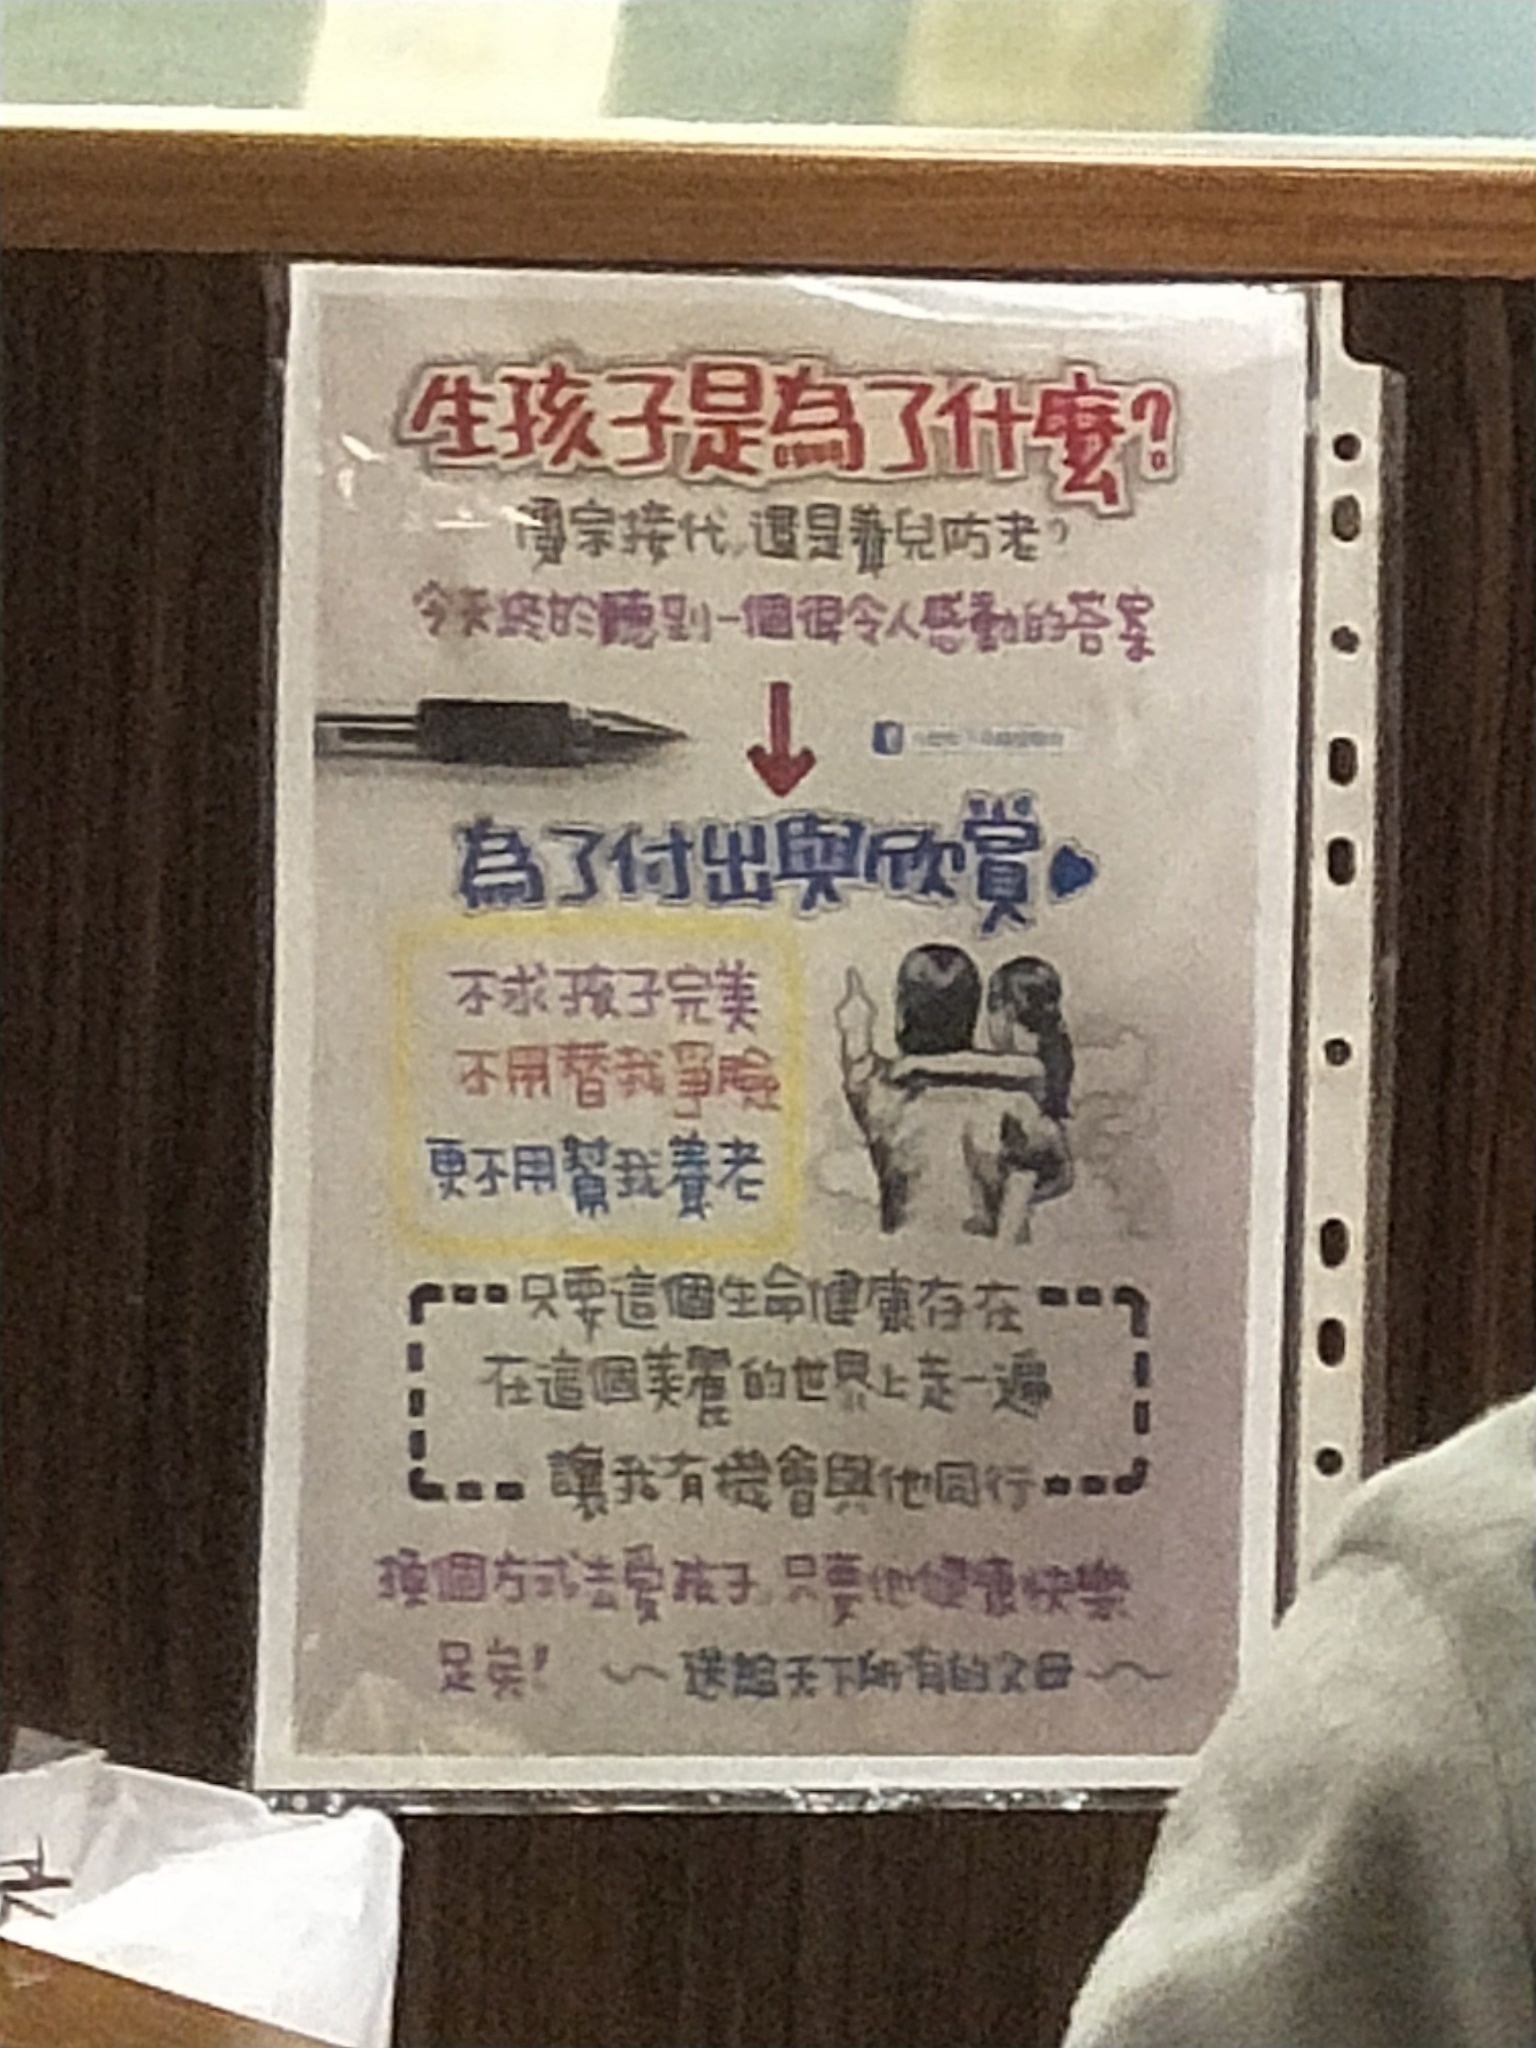 生孩子是為了什麼?
傳宗接代,還是養兒防老?
今天終於聽到一個很令人感動的答案
為了付出與欣賞
不求孩子完美
不用替我爭臉
更不用幫我養老
只要這個生命健康存在
在這個美麗的世界上走一遍
讓我有機會與他同行
換個方式去愛孩子,只要他健康快樂
足矣! ~ 送給天下所有的父母 ~